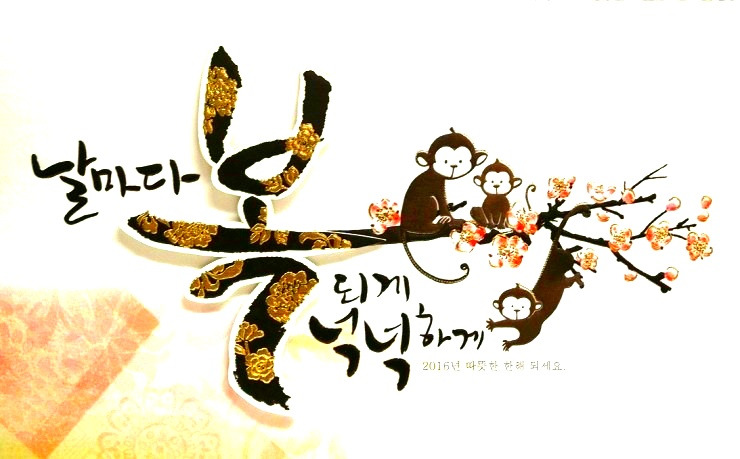 날마다
복
되게
넉넉하게
2016년 따뜻한 한해 되세요.